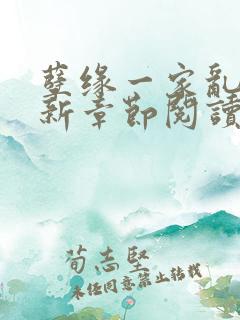 孽缘一家亂
新章節閱讀
荀志堅
未经同意禁止转载